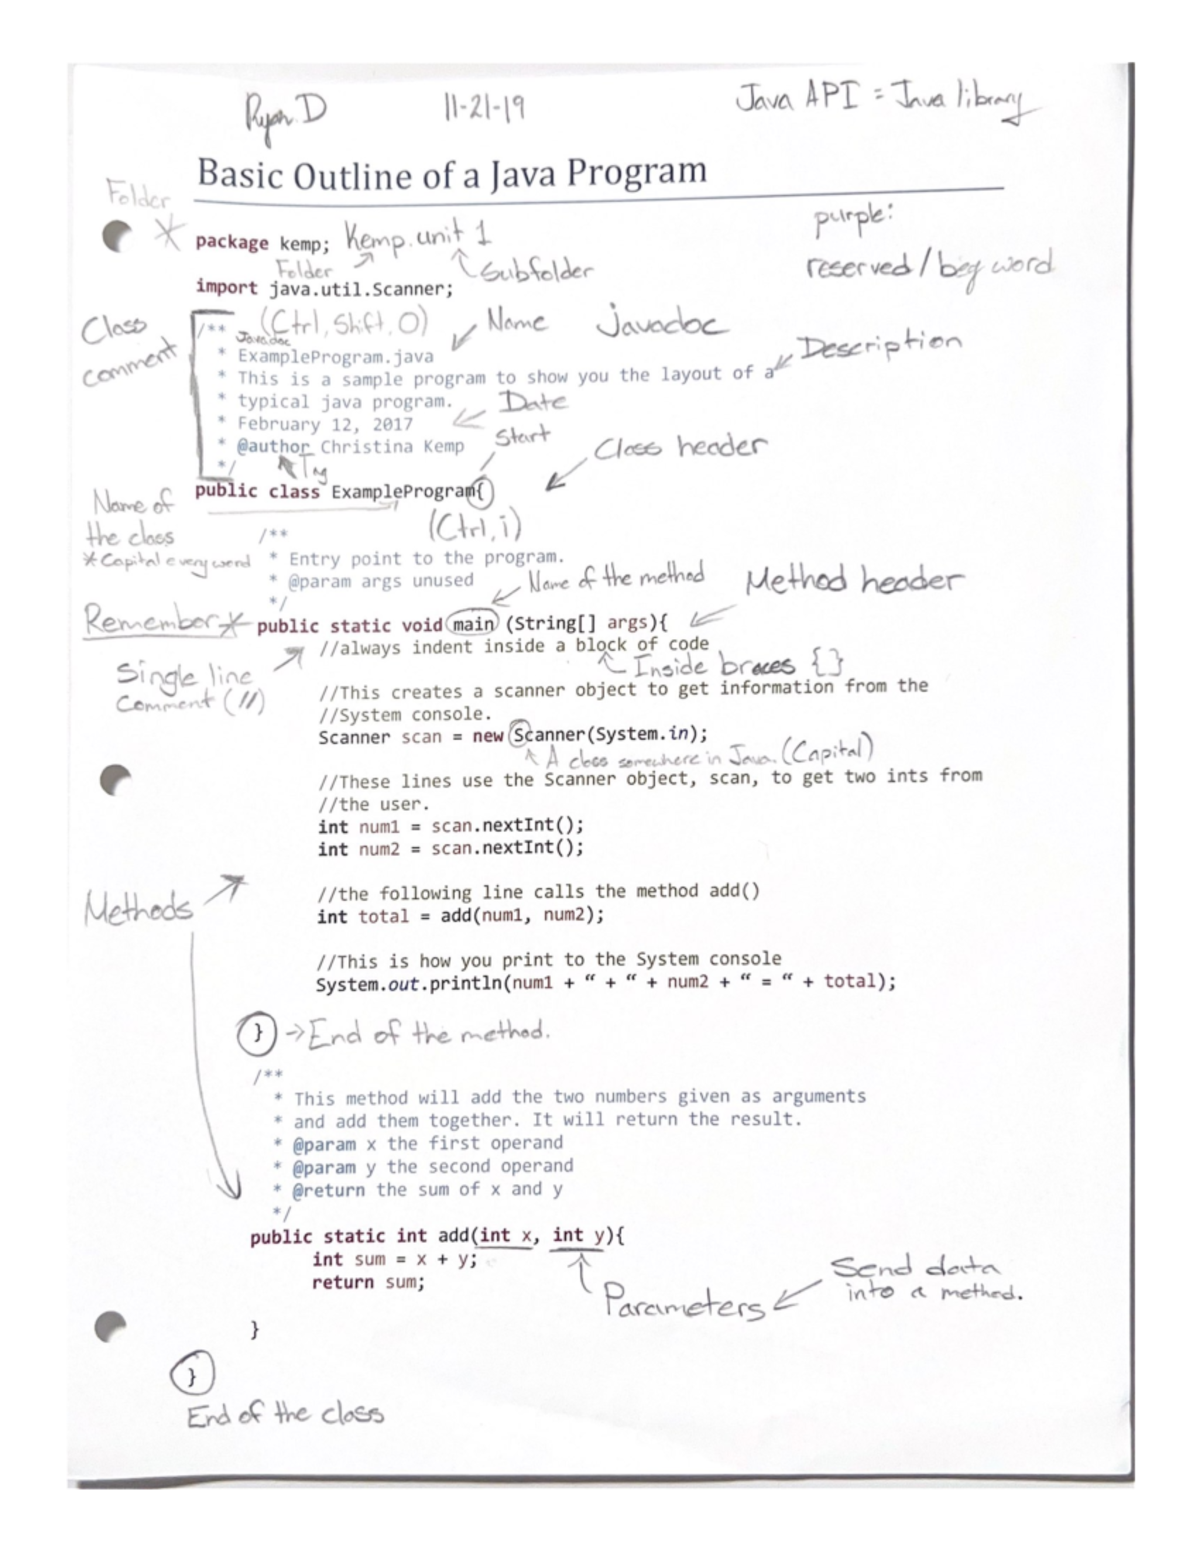 Ryan D 11-21-19 Java API = Java library
Basic Outline of a Java Program
Folder
purple:
reserved / beg word
* package kemp; Kemp.unit 1
Folder Subfolder
import java.util.Scanner;
Class comment
/** (Ctrl, Shift, O) Name Javadoc
Javadoc
* ExampleProgram.java Description
* This is a sample program to show you the layout of a
* typical java program. Date
* February 12, 2017 Start
* @author Christina Kemp Class header
*/ Tag
public class ExampleProgram{
Name of
the class
* Capital every word
(Ctrl, i)
/**
* Entry point to the program.
* @param args unused Name of the method Method header
*/
Remember * public static void main (String[] args){
//always indent inside a block of code
Single line
Comment (//)
Inside braces { }
//This creates a scanner object to get information from the
//System console.
Scanner scan = new Scanner(System.in);
A class somewhere in Java. (Capital)
//These lines use the Scanner object, scan, to get two ints from
//the user.
int num1 = scan.nextInt();
int num2 = scan.nextInt();
Methods
//the following line calls the method add()
int total = add(num1, num2);
//This is how you print to the System console
System.out.println(num1 + “ + “ + num2 + “ = “ + total);
} → End of the method.
/**
* This method will add the two numbers given as arguments
* and add them together. It will return the result.
* @param x the first operand
* @param y the second operand
* @return the sum of x and y
*/
public static int add(int x, int y){
int sum = x + y;
return sum;
Parameters
Send data
into a method.
}
}
End of the class